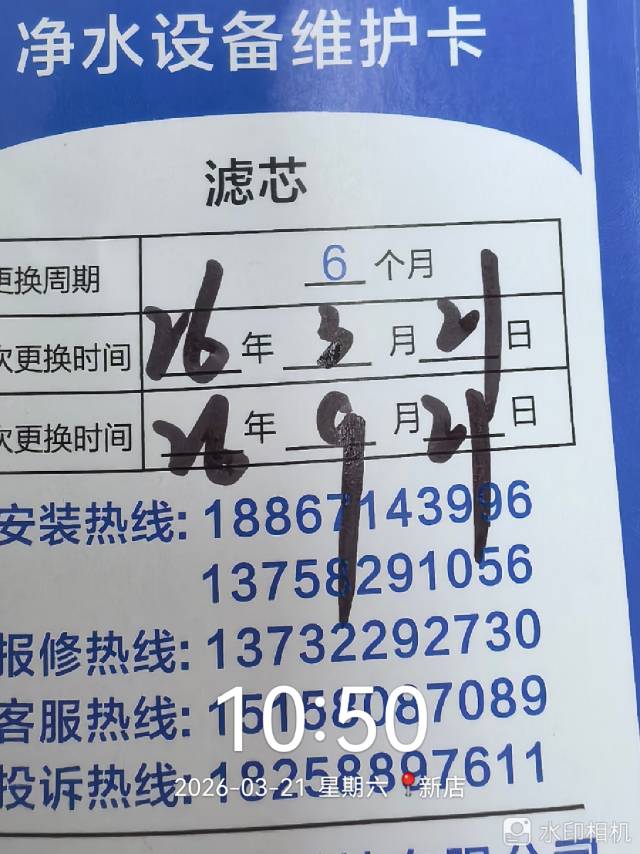 净水设备维护卡
滤芯
更换周期 6 个月
次更换时间 26 年 3 月 21 日
次更换时间 26 年 9 月 21 日
安装热线: 18867143996
13758291056
报修热线: 13732292730
客服热线: 15158087089
投诉热线: 18258897611
10:50
2026-03-21 星期六 新店
水印相机